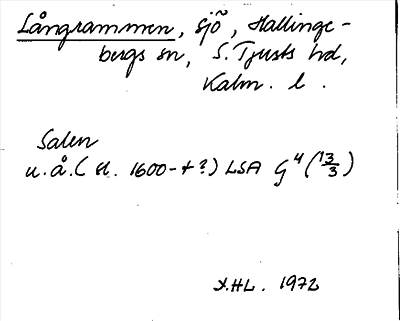 Långrammen, sjö, Hallinge-
bergs sn, S. Tjusts hd,
Kalm. l.
Salen
u.å. (sl. 1600-t?) LSA G⁴ (13/3)
X.HL. 1972